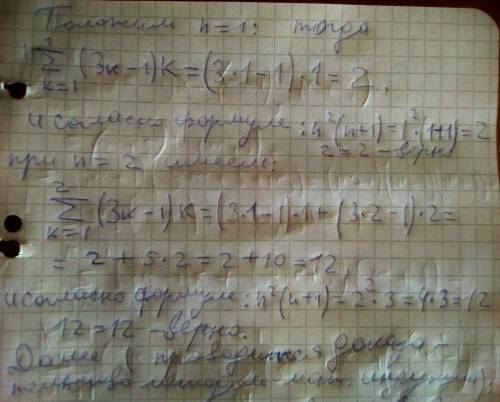 Положим n=1: тогда
1
∑ (3к-1)к=(3·1-1)·1=2,
k=1
и согласно формуле: n²(n+1)=1²·(1+1)=2
2=2 - верно
при n=2 имеем:
2
∑ (3к-1)к=(3·1-1)·1+(3·2-1)·2=
k=1
= 2+5·2=2+10=12,
и согласно формуле: n²(n+1)=2²·3=4·3=12
12=12 - верно.
Далее проводится доказа-
тельство методом мат. индукции).